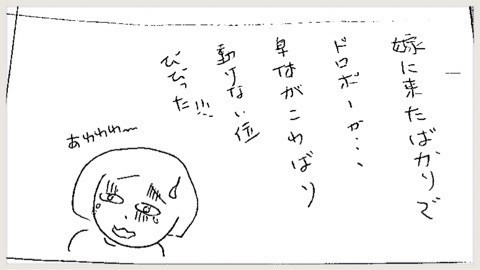 嫁に来たばかりで
ドロボーか…、
身体がこわばり
動けない位
びびった!!!
あわわわ〜